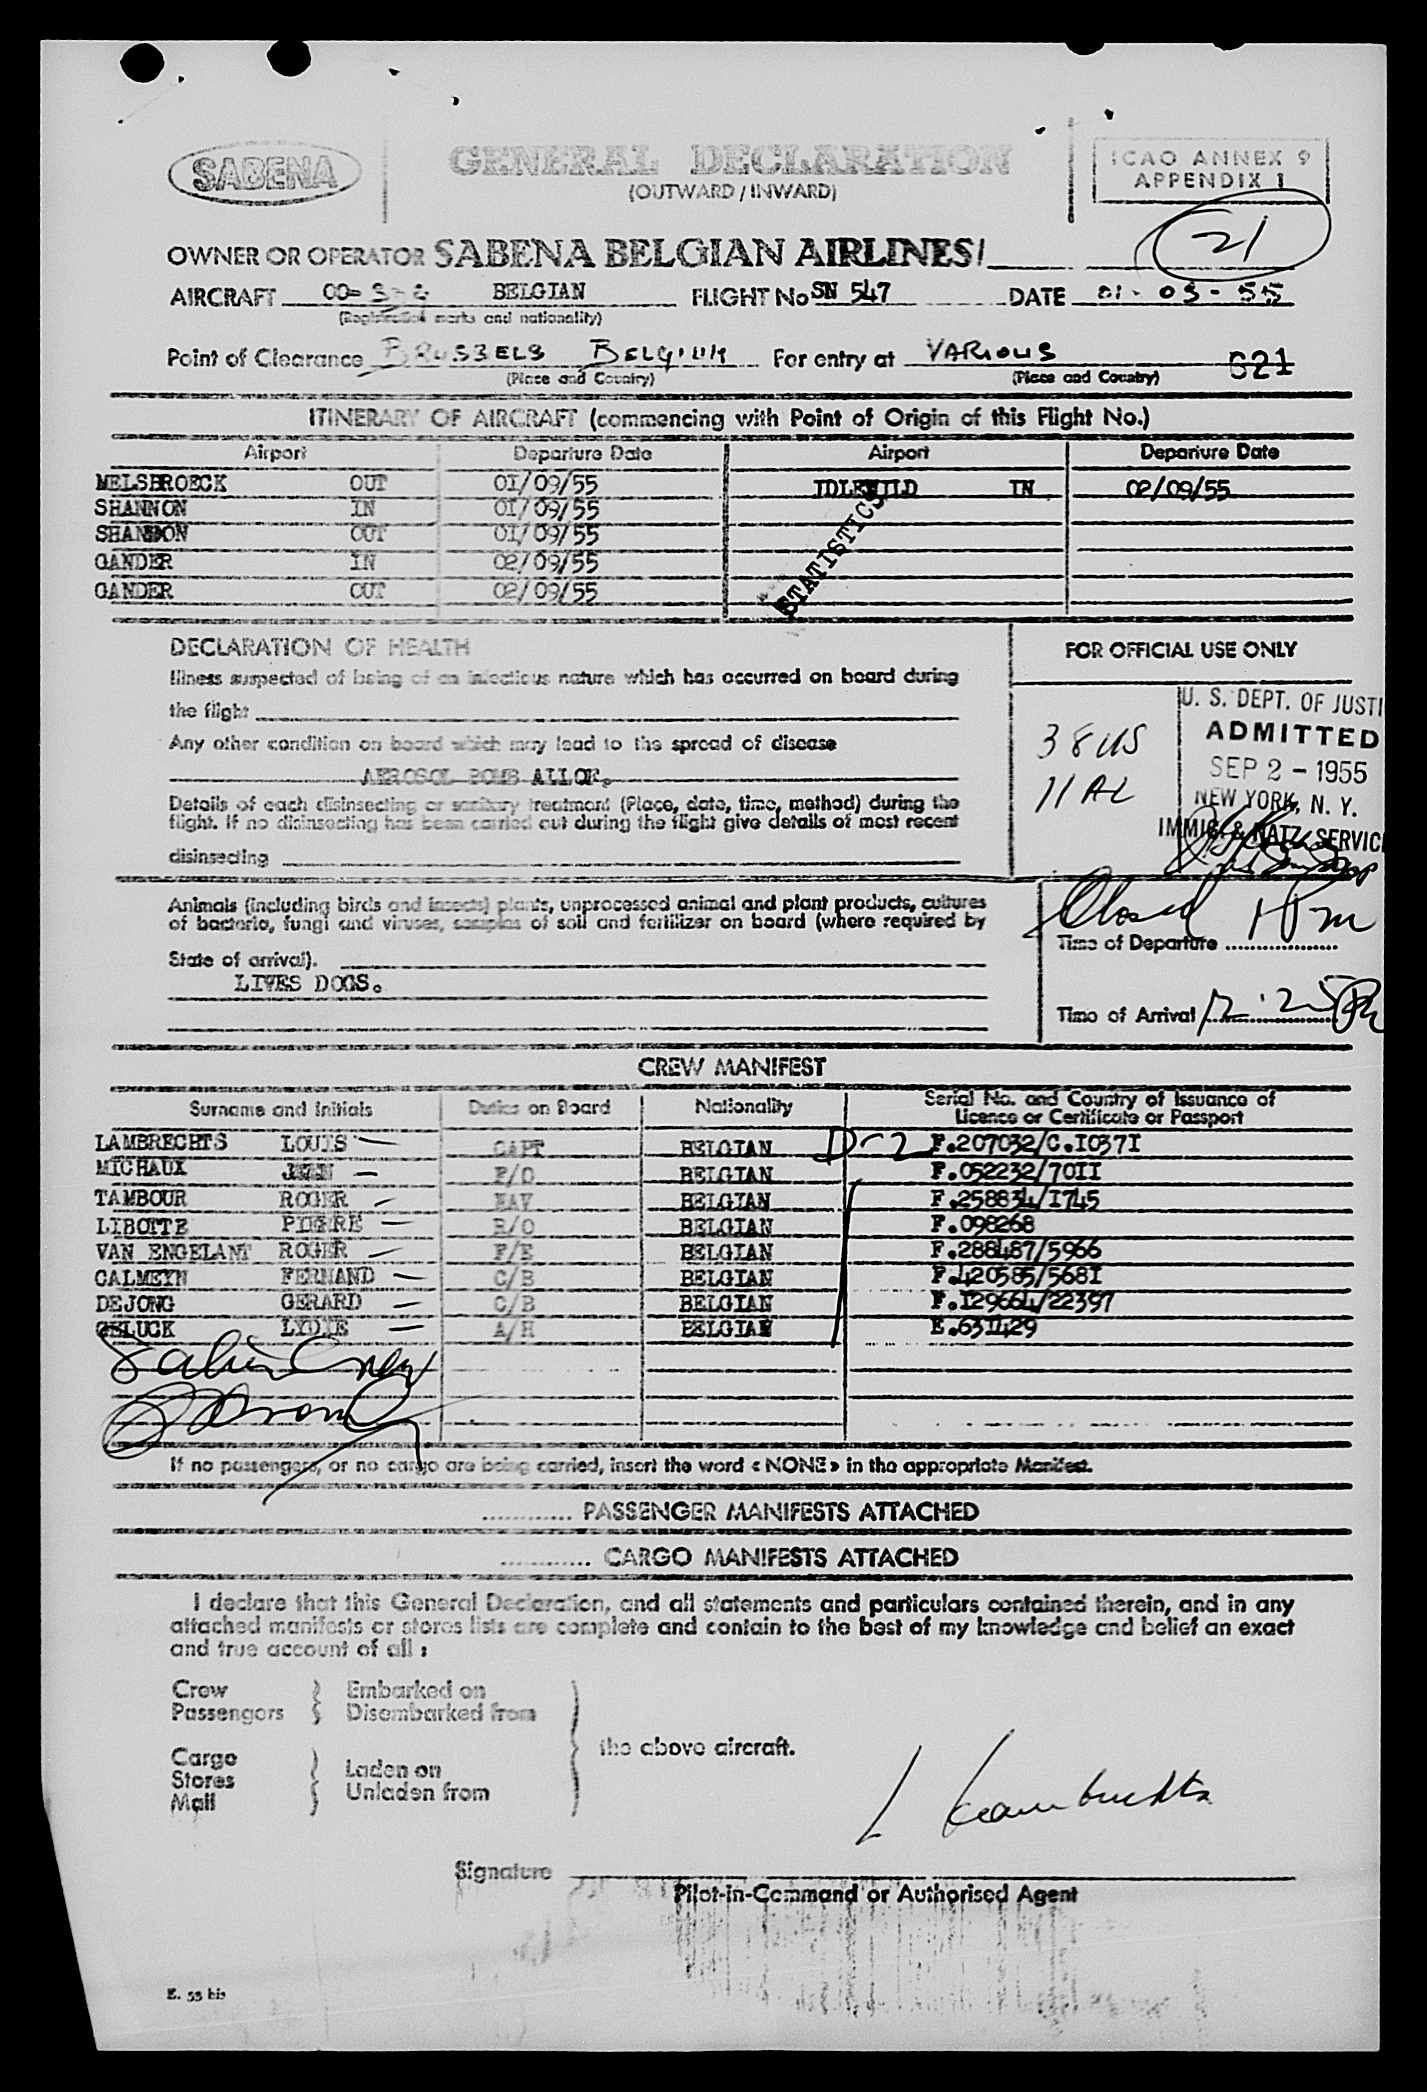 SABENA
GENERAL DECLARATION
(OUTWARD / INWARD)
ICAO ANNEX 9
APPENDIX 1
21
OWNER OR OPERATOR SABENA BELGIAN AIRLINES/
AIRCRAFT OO- BELGIAN FLIGHT No SN 547 DATE 01-09-55
(Registration marks and nationality)
Point of Clearance BRUSSELS BELGIUM For entry at VARIOUS 621
(Place and Country) (Place and Country)
ITINERARY OF AIRCRAFT (commencing with Point of Origin of this Flight No.)
Airport Departure Date Airport Departure Date
MELSBROECK OUT 01/09/55 IDLEWILD IN 02/09/55
SHANNON IN 01/09/55
SHANNON OUT 01/09/55
GANDER IN 02/09/55
GANDER OUT 02/09/55
STATISTICS
DECLARATION OF HEALTH
Illness suspected of being of an infectious nature which has occurred on board during
the flight
Any other condition on board which may lead to the spread of disease
AEROSOL BOMB ALLOF.
Details of each disinsecting or sanitary treatment (Place, date, time, method) during the
flight. If no disinsecting has been carried out during the flight give details of most recent
disinsecting
FOR OFFICIAL USE ONLY
38 US
11 AL
U. S. DEPT. OF JUSTI
ADMITTED
SEP 2 - 1955
NEW YORK, N. Y.
IMMIG. & NATZ. SERVIC
Animals (including birds and insects) plants, unprocessed animal and plant products, cultures
of bacteria, fungi and viruses, samples of soil and fertilizer on board (where required by
State of arrival).
LIVES DOGS.
Closed
Time of Departure
Time of Arrival 12:25
CREW MANIFEST
Surname and Initials Duties on Board Nationality Serial No. and Country of Issuance of
Licence or Certificate or Passport
LAMBRECHTS LOUIS CAPT BELGIAN D-2 F.207032/C.I037I
MICHAUX JEAN F/O BELGIAN F.052232/70II
TAMBOUR ROGER NAV BELGIAN F.258834/I745
LIBOTTE PIERRE R/O BELGIAN F.098268
VAN ENGELANT ROGER F/E BELGIAN F.288487/5966
CALMEYN FERNAND C/B BELGIAN F.420585/568I
DEJONG GERARD C/B BELGIAN F.I29664/22397
GELUCK LYDIE A/H BELGIAN E.63I429
If no passengers, or no cargo are being carried, insert the word « NONE » in the appropriate Manifest.
............ PASSENGER MANIFESTS ATTACHED
............ CARGO MANIFESTS ATTACHED
I declare that this General Declaration, and all statements and particulars contained therein, and in any
attached manifests or stores lists are complete and contain to the best of my knowledge and belief an exact
and true account of all :
Crew
Passengers
Embarked on
Disembarked from
Cargo
Stores
Mail
Laden on
Unladen from
the above aircraft.
L Lambrechts
Signature
Pilot-in-Command or Authorised Agent
E. 33 bis